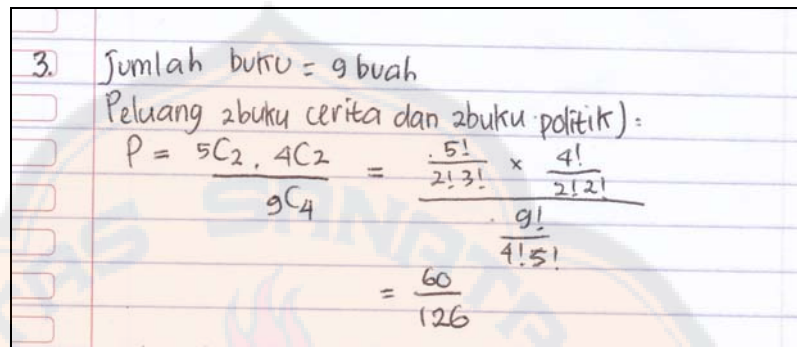 3. Jumlah buku = 9 buah
Peluang 2 buku cerita dan 2 buku politik) :
P = 5C2 . 4C2 / 9C4 = 5!/2!3! × 4!/2!2! / 9!/4!5!
= 60/126